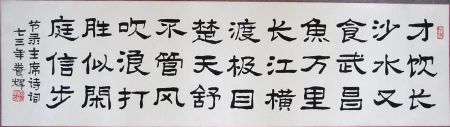 才饮长
沙水又
食武昌
魚万里
长江横
渡极目
楚天舒
不管风
吹浪打
胜似閑
庭信步
节录主席诗词
七三年